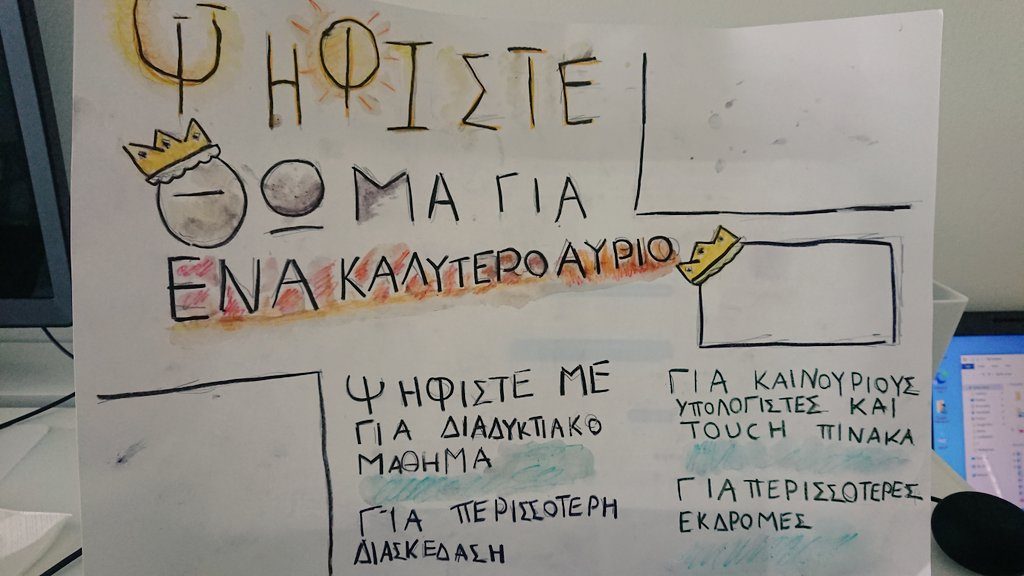 ΨΗΦΙΣΤΕ
ΘΩΜΑ ΓΙΑ
ΕΝΑ ΚΑΛΥΤΕΡΟ ΑΥΡΙΟ
ΨΗΦΙΣΤΕ ΜΕ
ΓΙΑ ΔΙΑΔΥΚΤΙΑΚΟ
ΜΑΘΗΜΑ
ΓΙΑ ΠΕΡΙΣΣΟΤΕΡΗ
ΔΙΑΣΚΕΔΑΣΗ
ΓΙΑ ΚΑΙΝΟΥΡΙΟΥΣ
ΥΠΟΛΟΓΙΣΤΕΣ ΚΑΙ
TOUCH ΠΙΝΑΚΑ
ΓΙΑ ΠΕΡΙΣΣΟΤΕΡΕΣ
ΕΚΔΡΟΜΕΣ